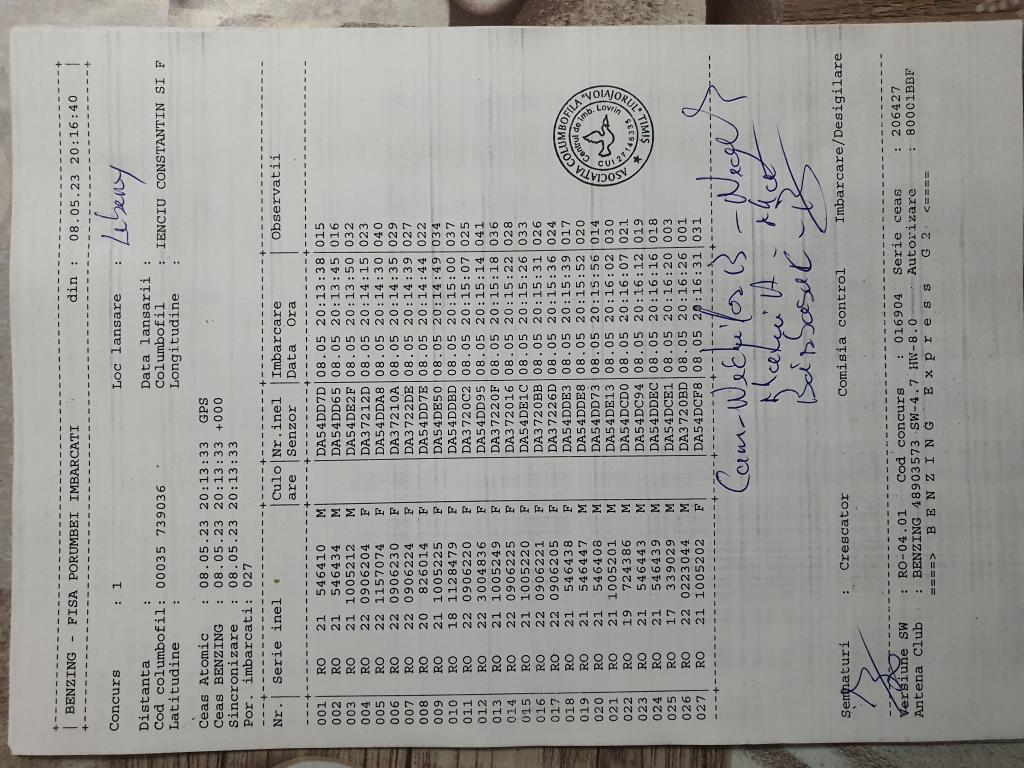 BENZING - FISA PORUMBEI IMBARCATI din : 08.05.23 20:16:40
Concurs : 1 Loc lansare : Lebeny
Distanta : Data lansarii :
Cod columbofil: 00035 739036 Columbofil : IENCIU CONSTANTIN SI F
Latitudine : Longitudine :
Ceas Atomic : 08.05.23 20:13:33 GPS
Ceas BENZING : 08.05.23 20:13:33 +000
Sincronizare : 08.05.23 20:13:33
Por. imbarcati: 027
Nr. | Serie inel | Culo | Nr.inel | Imbarcare | Observatii
are | Senzor | Data Ora
001 RO 21 546410 M DA54DD7D 08.05 20:13:38 015
002 RO 21 546434 M DA54DD65 08.05 20:13:45 016
003 RO 21 1005212 M DA54DE2F 08.05 20:13:50 032
004 RO 22 0906204 F DA37212D 08.05 20:14:15 023
005 RO 21 1157074 F DA54DDA8 08.05 20:14:30 040
006 RO 22 0906230 F DA37210A 08.05 20:14:35 029
007 RO 22 0906224 F DA3722DE 08.05 20:14:39 027
008 RO 20 826014 F DA54DD7E 08.05 20:14:44 022
009 RO 21 1005225 F DA54DE50 08.05 20:14:49 034
010 RO 18 1128479 F DA54DDBD 08.05 20:15:00 037
011 RO 22 0906220 F DA3720C2 08.05 20:15:07 025
012 RO 22 3004836 F DA54DD95 08.05 20:15:14 041
013 RO 21 1005249 F DA37220F 08.05 20:15:18 036
014 RO 22 0906225 F DA372016 08.05 20:15:22 028
015 RO 21 1005220 F DA54DE1C 08.05 20:15:26 033
016 RO 22 0906221 F DA3720BB 08.05 20:15:31 026
017 RO 22 0906205 F DA37226D 08.05 20:15:36 024
018 RO 21 546438 F DA54DDE3 08.05 20:15:39 017
019 RO 21 546447 M DA54DDE8 08.05 20:15:52 020
020 RO 21 546408 M DA54DD73 08.05 20:15:56 014
021 RO 21 1005201 M DA54DE13 08.05 20:16:02 030
022 RO 19 724386 M DA54DCD0 08.05 20:16:07 021
023 RO 21 546443 M DA54DC94 08.05 20:16:12 019
024 RO 21 546439 M DA54DDEC 08.05 20:16:16 018
025 RO 17 339029 M DA54DCE1 08.05 20:16:20 003
026 RO 22 0223044 M DA3720BD 08.05 20:16:26 001
027 RO 21 1005202 F DA54DCF8 08.05 20:16:31 031
ASOCIATIA COLUMBOFILA "VOIAJORUL" TIMIS
Centrul de imb. Lovrin
Semnaturi : Crescator Comisia control Imbarcare/Desigilare
Versiune SW : RO-04.01 Cod concurs : 016904 Serie ceas : 206427
Antena Club : BENZING 48903573 SW-4.7 HW-8.0 Autorizare : 80001BBF
====> B E N Z I N G E x p r e s s G 2 <====